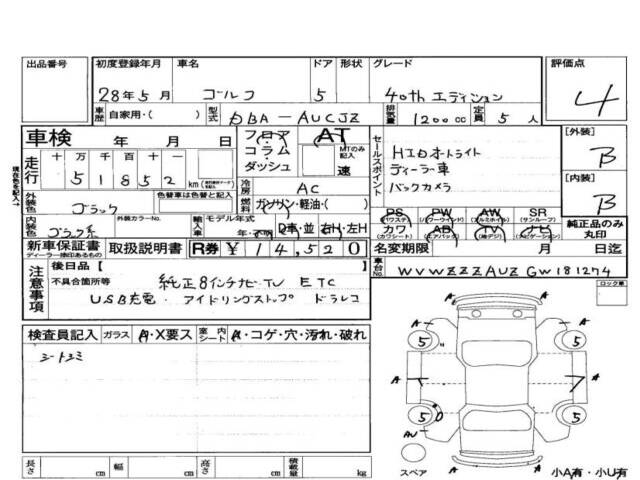 出品番号 初度登録年月 車名 ドア 形状 グレード 評価点
28年5月 ゴルフ 5 40thエディション 4
車歴 自家用・( ) 型式 DBA-AUCJZ 排気量 1200cc 定員 5人
車検 年 月 日 フロア AT
コラム MTのみ記入
ダッシュ 速
走行 十 万 千 百 十 一
51852 km
セールスポイント
HIDオートライト
ディーラー車
バックカメラ
[外装]
B
[内装]
B
純正品のみ丸印
冷房 AC
燃料 ガソリン・軽油・( )
外装色 ブラック 色替車は色替と記入
内装色 ブラック系 外装カラーNo. 輸入車 モデル年式
年・不明 D車・並 右H・左H
PS PW AW SR
(パワステ) (パワーウインド) (アルミホイル) (サンルーフ)
カワ AB TV ナビ
(カワシート) (エアバック) (地デジ) (ナビゲーション)
新車保証書 取扱説明書 R券 ¥14,520 名変期限 月 日迄
ディーラー捺印あるもの
車台No. WVWZZZAUZGW181274
注意事項
後日品 [ ]
不具合箇所等 純正8インチナビTV ETC
USB充電 アイドリングストップ ドラレコ
ロック車
検査員記入 ガラス A・X要ス 室内シート A・コゲ・穴・汚れ・破れ
シートスミ
A A
A
5 5
A A
5 5
AU A
A
スペア 小A有・小U有
長さ cm 幅 cm 高さ cm 積載量 kg